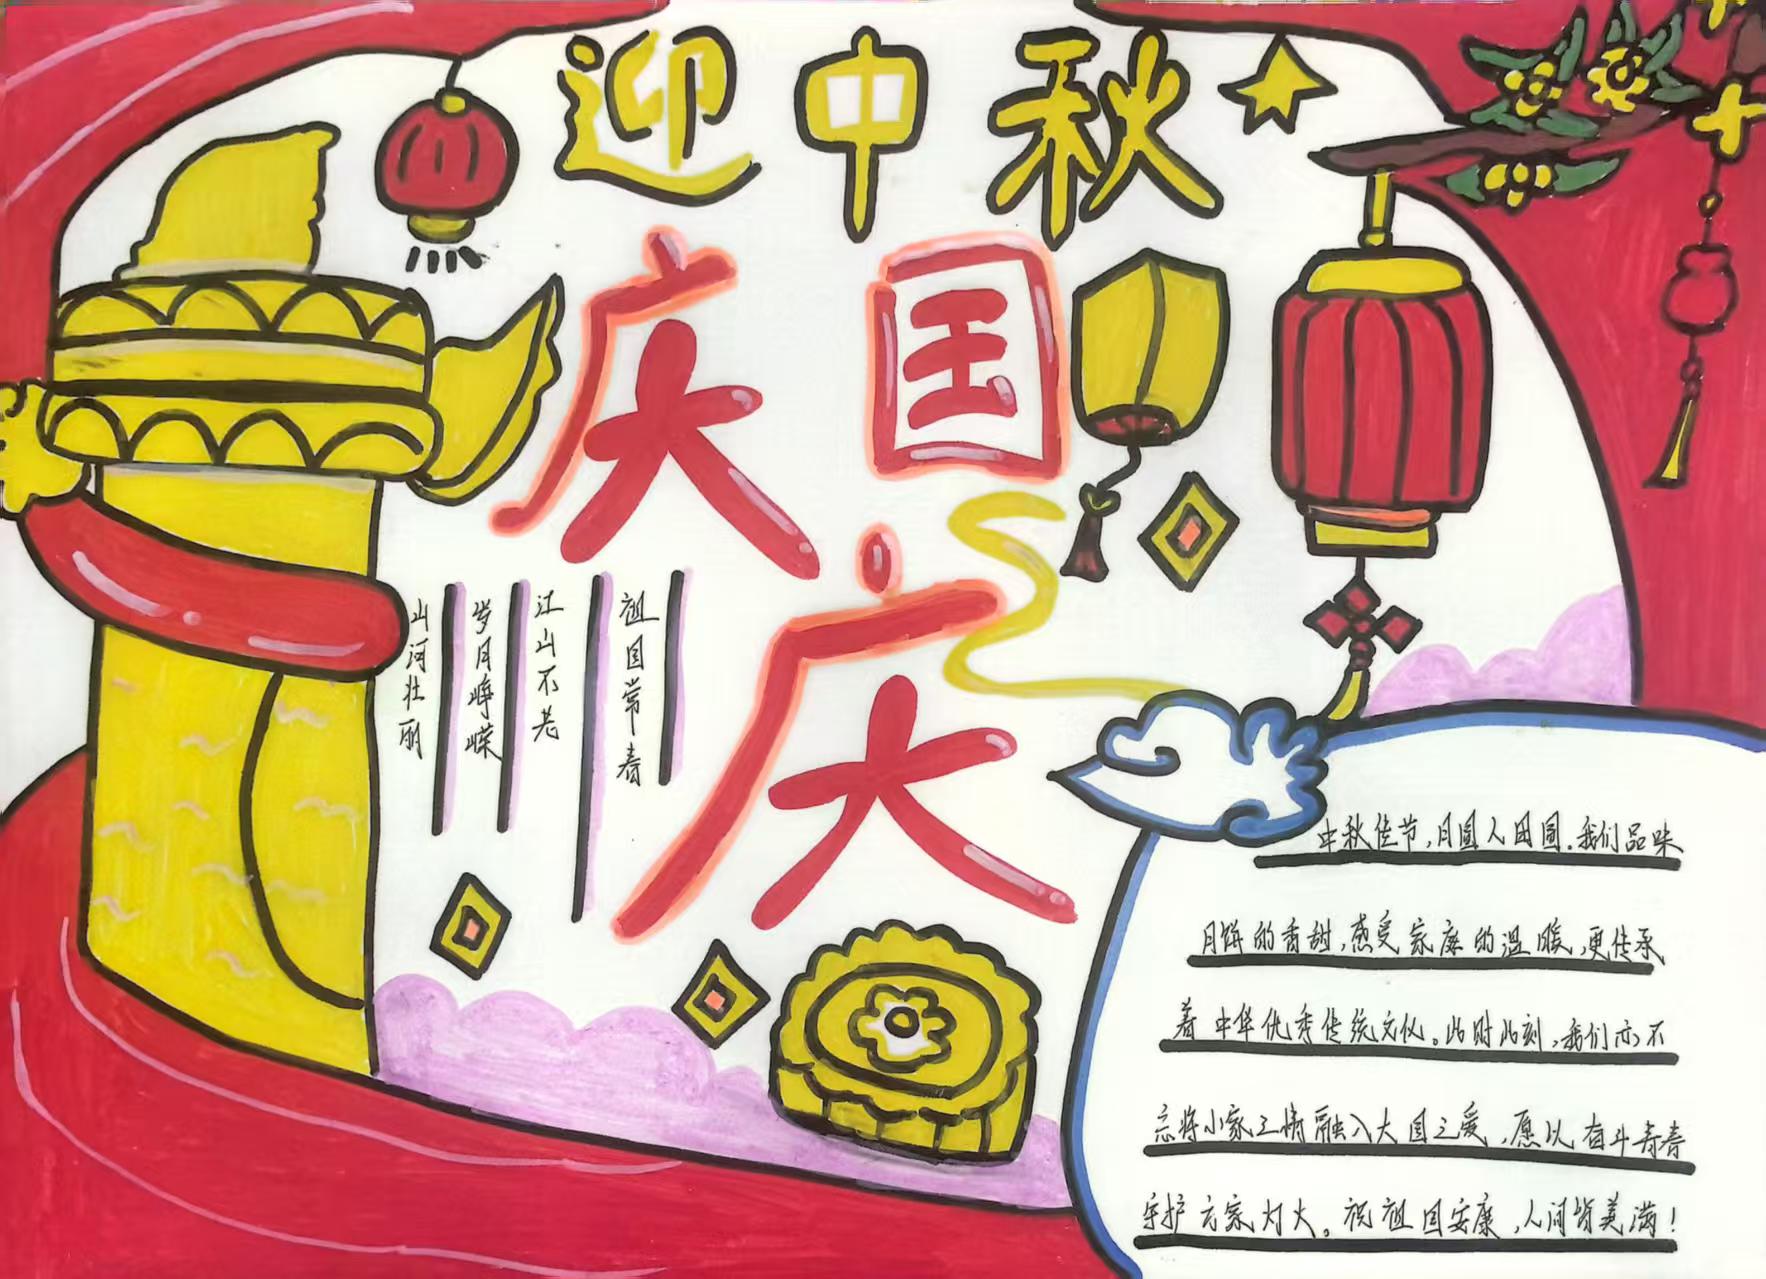 迎中秋
庆国
庆
祖国常春
江山不老
岁月峥嵘
山河壮丽
中秋佳节,月圆人团圆.我们品味
月饼的香甜,感受家庭的温暖,更传承
着中华优秀传统文化。此时此刻,我们亦不
忘将小家之情融入大国之爱,愿以奋斗青春
守护万家灯火。祝祖国安康,人间皆美满!